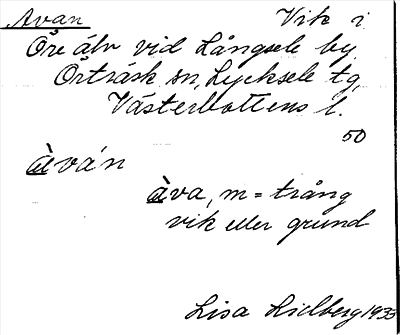 Avan Vik i
Öre älv vid Långsele by
Örträsk sn, Lycksele tg,
Västerbottens l.
50
àván
àva, m = trång
vik eller grund
Lisa Lidberg